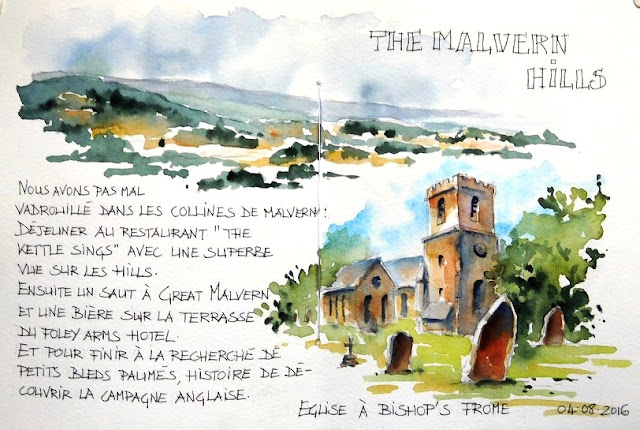 THE MALVERN
HILLS
NOUS AVONS PAS MAL
VADROUILLÉ DANS LES COLLINES DE MALVERN :
DÉJEUNER AU RESTAURANT "THE
KETTLE SINGS" AVEC UNE SUPERBE
VUE SUR LES HILLS.
ENSUITE UN SAUT À GREAT MALVERN
ET UNE BIÈRE SUR LA TERRASSE
DU FOLEY ARMS HOTEL.
ET POUR FINIR À LA RECHERCHE DE
PETITS BLEDS PAUMÉS, HISTOIRE DE DÉ-
COUVRIR LA CAMPAGNE ANGLAISE.
EGLISE À BISHOP'S FROME 04.08.2016